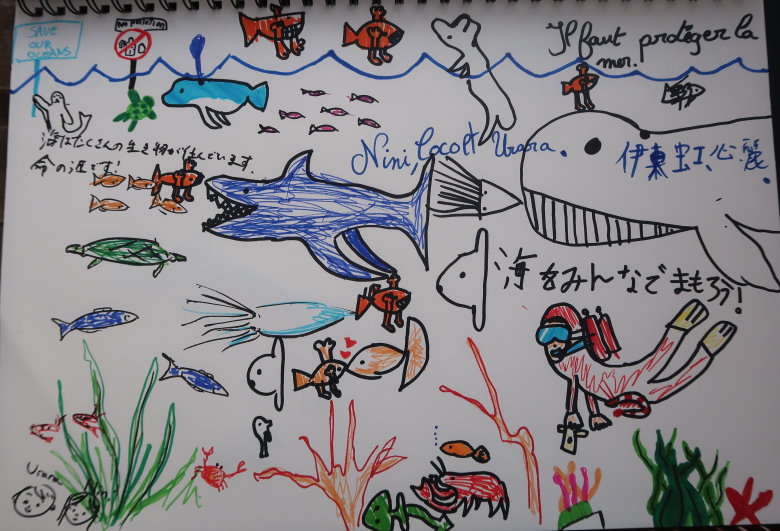 SAVE
OUR
OCEANS
No pollution
Il faut protéger la
mer.
海はたくさんの生き物がすんでいます。
命の源です!
Nini, Cocolt Urara.
伊東 虹心 麗
海をみんなでまもろう!
Urara
Nini